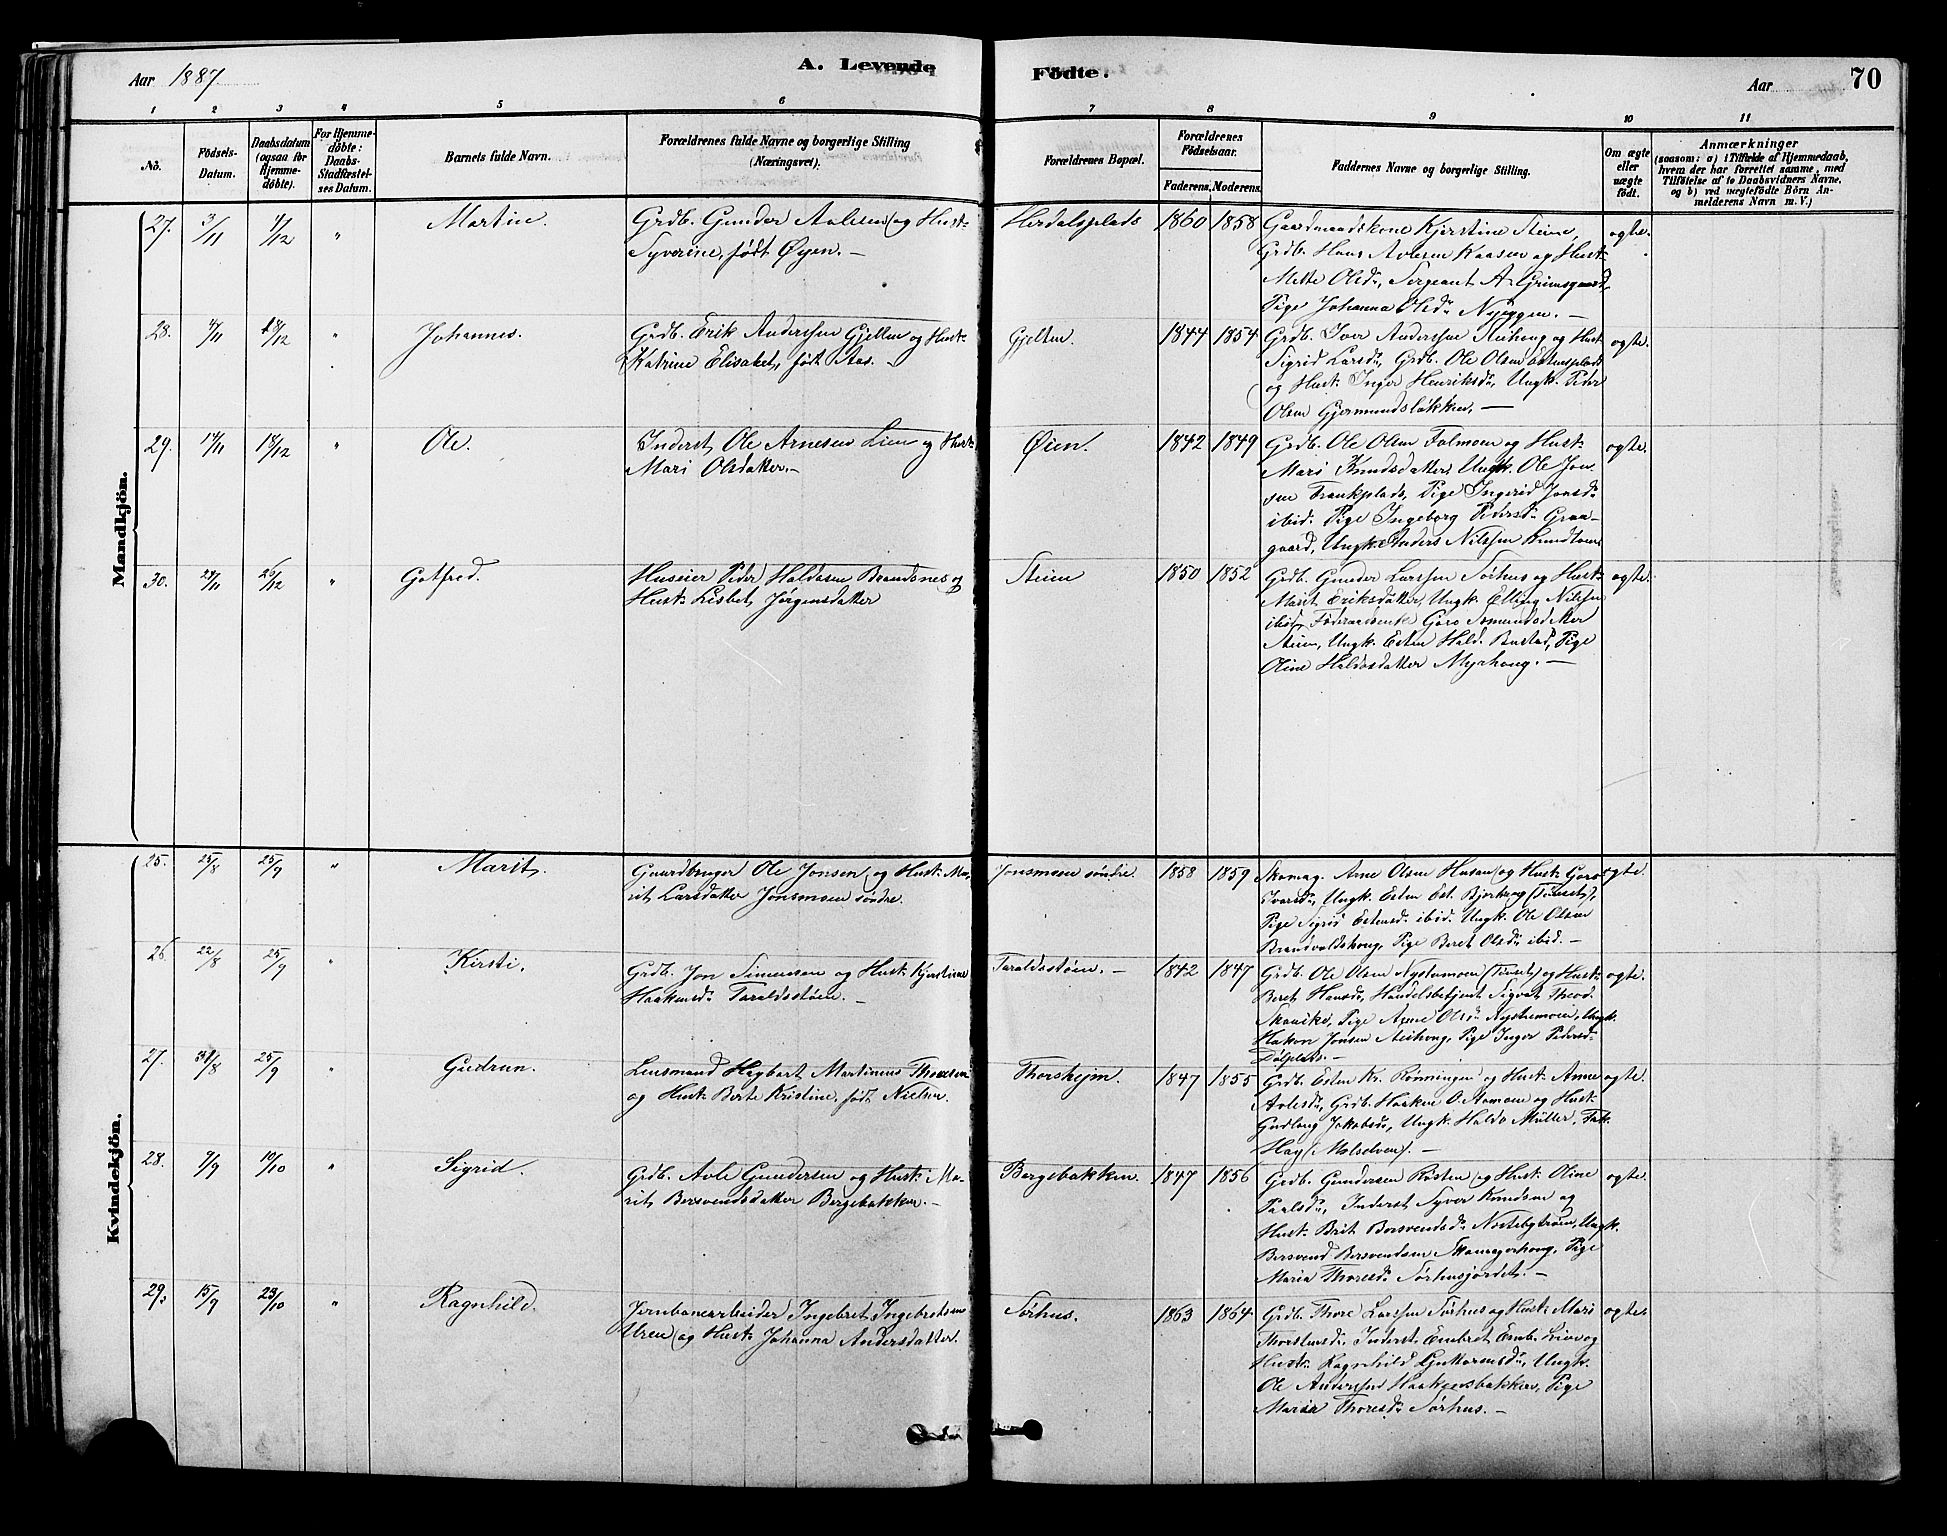 Aar 1887. A. Levende Fødte. Aar 70
1 2 3 4 5 6 7 8 9 10 11
No. Fødsels-Datum. Daabsdatum (ogsaa for Hjemmedøbte). For Hjemmedøbte: Daabs-Stadfæstelses Datum. Barnets fulde Navn. Forældrenes fulde Navne og borgerlige Stilling (Næringsvei). Forældrenes Bopæl. Forældrenes Fødselsaar. Faderens. Moderens. Faddernes Navne og borgerlige Stilling. Om ægte eller uægte født. Anmærkninger
(saasom: a) i Tilfælde af Hjemmedaab, hvem der har forrettet samme, med Tilføielse af to Daabsvidners Navne, og b) ved uægtefødte Børn Anmelderens Navn m. V.)
Mandkjön.
27. 3/11 4/12 " Martin. Grdb. Gunder Avlesen og Hust: Syverine, født Øyen. — Herdalsplads 1860 1858 Gaardmandskone Kjerstine Steine,
Grdb. Hans Avlesen Kaasen og Hust:
Mette Olsdr, Sergeant A. Grimsgaard,
Pige Johanna Olsdr Nyeggen. —
ægte.
28. 4/11 18/12 " Johannes. Grdb. Erik Anderssen Gjelten og Hust:
Katrine Elisabet, født Aas. —
Gjelten. 1844 1854. Grdb. Iver Anderssen Steihaug og Hust
Sigrid Larsdr, Grdb. Ole Olsen Estensplads
og Hust: Inger Henriksdr, Ungk. Peder
Olsen Gjermundsløkken. —
ægte.
29. 14/11 18/12 " Ole. Inderst Ole Arnesen Lien og Hust:
Mari Olsdatter. —
Øien. 1842 1849 Grdb. Ole Olsen Falmoen og Hust:
Mari Knudsdatter, Ungk. Ole Jon-
sen Trønkplads, Pige Ingerid Jonsdr
ibid. Pige Ingeborg Pedersdr Graa-
gaard, Ungk. Anders Nilssen
ægte.
30. 28/11 26/12 " Gotfred. Huseier Peder Haldosen Brandsnes og
Hust: Lisbet Jørgensdatter
Steien 1850 1852 Grdb. Gunder Larssen Sørhus og Hust:
Marit Eriksdatter, Ungk. Elling Nilssen
ibid, Føderaadsenke Goro Simensdatter
Steien, Ungk. Esten Hald. Bustad, Pige
Oline Haldosdatter Myrhaug. —
ægte.
Kvindekjön.
25. 25/8 25/9 " Marit. Gaardbruger Ole Jonsen og Hust: Ma-
rit Larsdatter Jonsmoen søndre.
Jonsmoen søndre. 1858 1859 Skomag. Arne Olsen Husan og Hust: Goro
Ivarsdr, Ungk. Esten Est. Bjørkeng (Tønset),
Pige Sigrid Estensdr ibid. Ungk. Ole Olsen
Brandvoldshaug, Pige Beret Olsdr ibid. —
ægte.
26. 22/8 25/9 " Kirsti. Grdb. Jon Simensen og Hust: Kjerstine
Haakensdr Taraldsstøen. —
Taraldsstøen. — 1842 1847 Grdb. Ole Olsen Nystumoen (Tønset) og Hust:
Beret Hansdr, Handelsbetjent Sigvat Theod.
Skancke, Pige Anne Olsdr Nystumoen, Ungk.
Hakon Jonsen Steihaug, Pige Inger Pedersdr
Dølplads. —
ægte.
27. 31/8 25/9 " Gudrun. Lensmand Hagbart Martinius Thoresen
og Hust: Berte Kristine, født Nielsen.
Thorshejm. 1847 1855 Grdb. Esten Kr. Rønningen og Hust: Anne
Avlesdr, Grdb. Haaken O. Stomoen og Hust:
Gudlaug Jakobsdr, Ungk. Haldo Müller,
Hoy (Maalselven). —
ægte.
28. 7/9 10/10 " Sigrid. Grdb. Avle Gundersen og Hust: Ma-
rit Bersvendsdatter Bergebakken. —
Bergebakken. 1847 1856 Grdb. Gundersen Røsten og Hust: Oline
Paalsdr, Inderst Syver Knudsen og
Hust: Brit Bersvendsdr Nystebytrøen, Ungk.
Bersvend Bersvendsen Skomagerhaug, Pige
Maria Thoresdr Sørhusjordet. —
ægte.
29. 15/9 23/10 " Ragnhild. Jernbanearbeider Ingebret Ingebretsen
Uren og Hust: Johanna Andersdatter.
Sørhus. 1863 1864. Grdb. Thore Larssen Sørhus og Hust: Mari
Thorstensdr, Inderst Embret Emb. Lien og
Hust: Ragnhild Guttormsdr, Ungk.
Ole Anderssen Haakensbakken, Pige
Maria Thoresdr Sørhus. —
ægte.